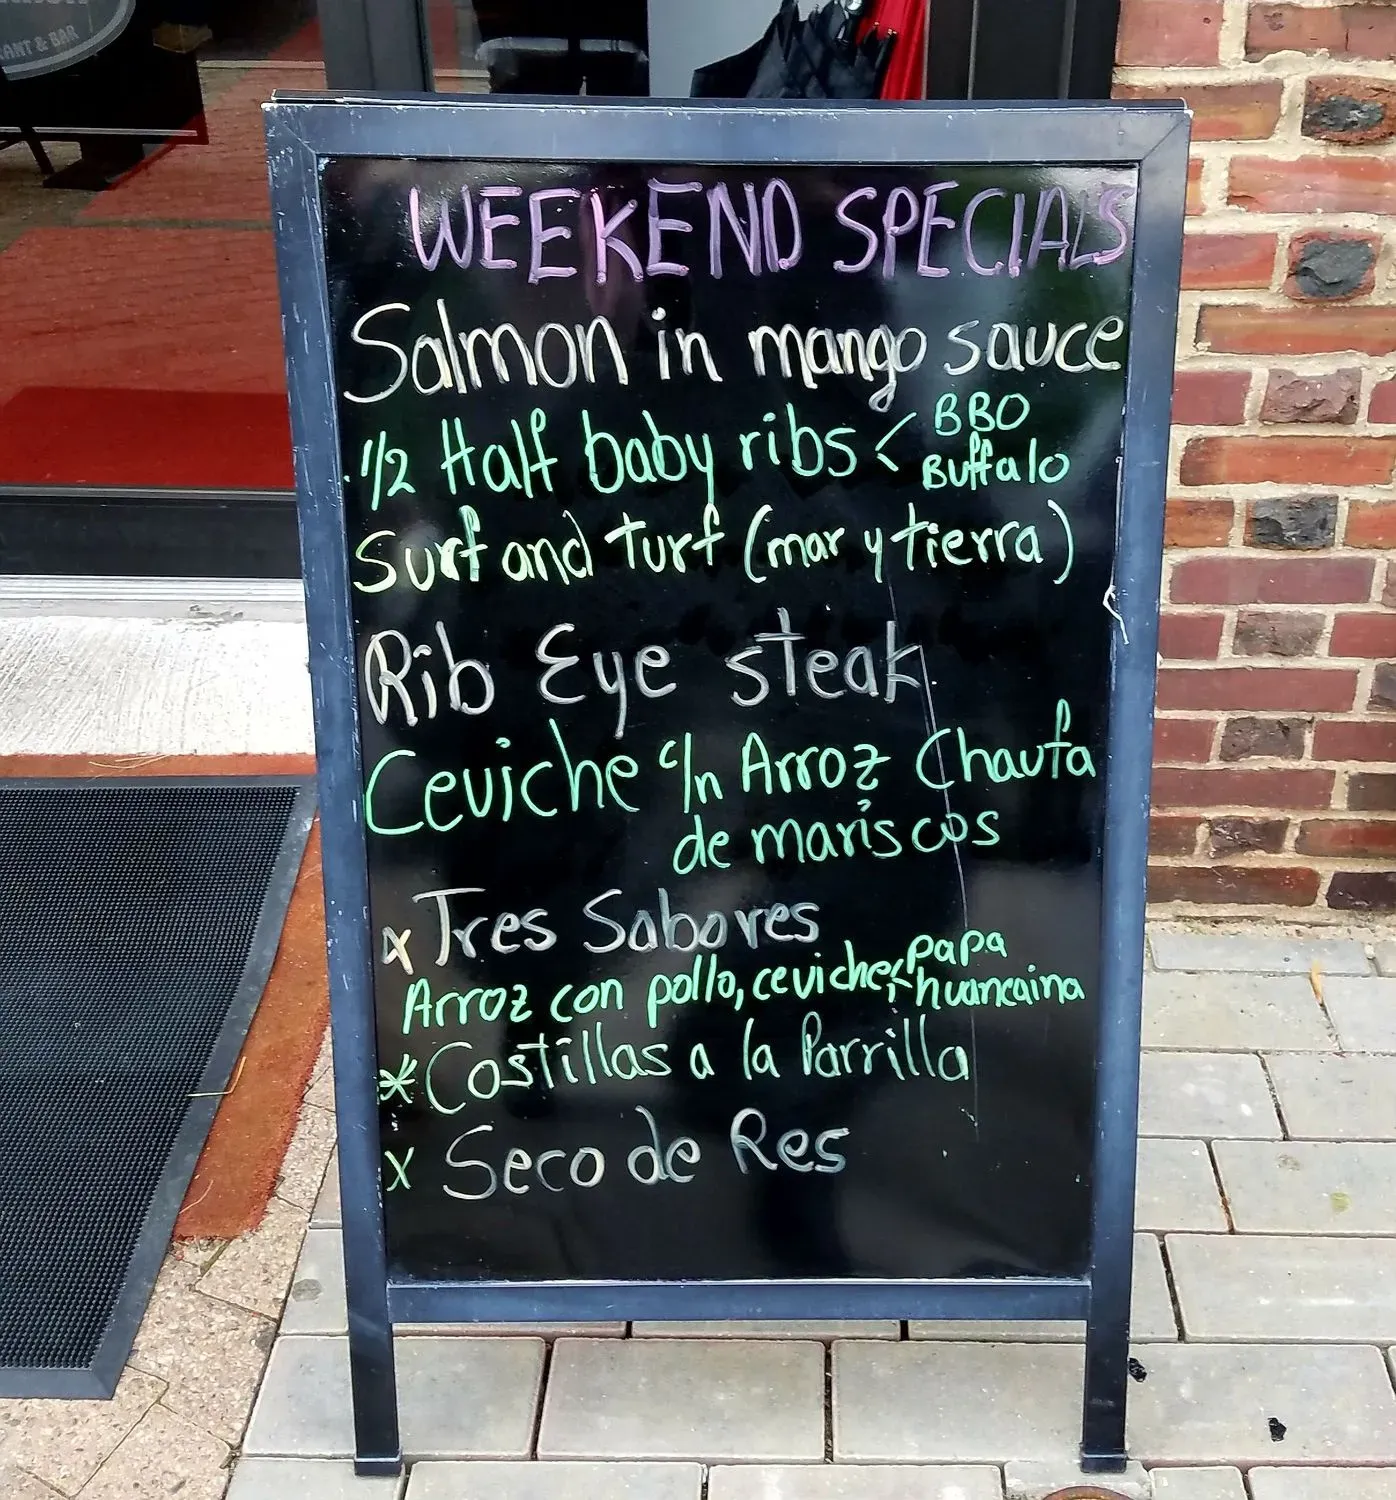 ANT & BAR
WEEKEND SPECIALS
Salmon in mango sauce
1/2 Half baby ribs < BBQ
Buffalo
Surf and turf (mar y tierra)
Rib Eye steak
Ceviche c/n Arroz Chaufa
de mariscos
x Tres Sabores
Arroz con pollo, ceviche, papa
huancaina
* Costillas a la Parrilla
x Seco de Res